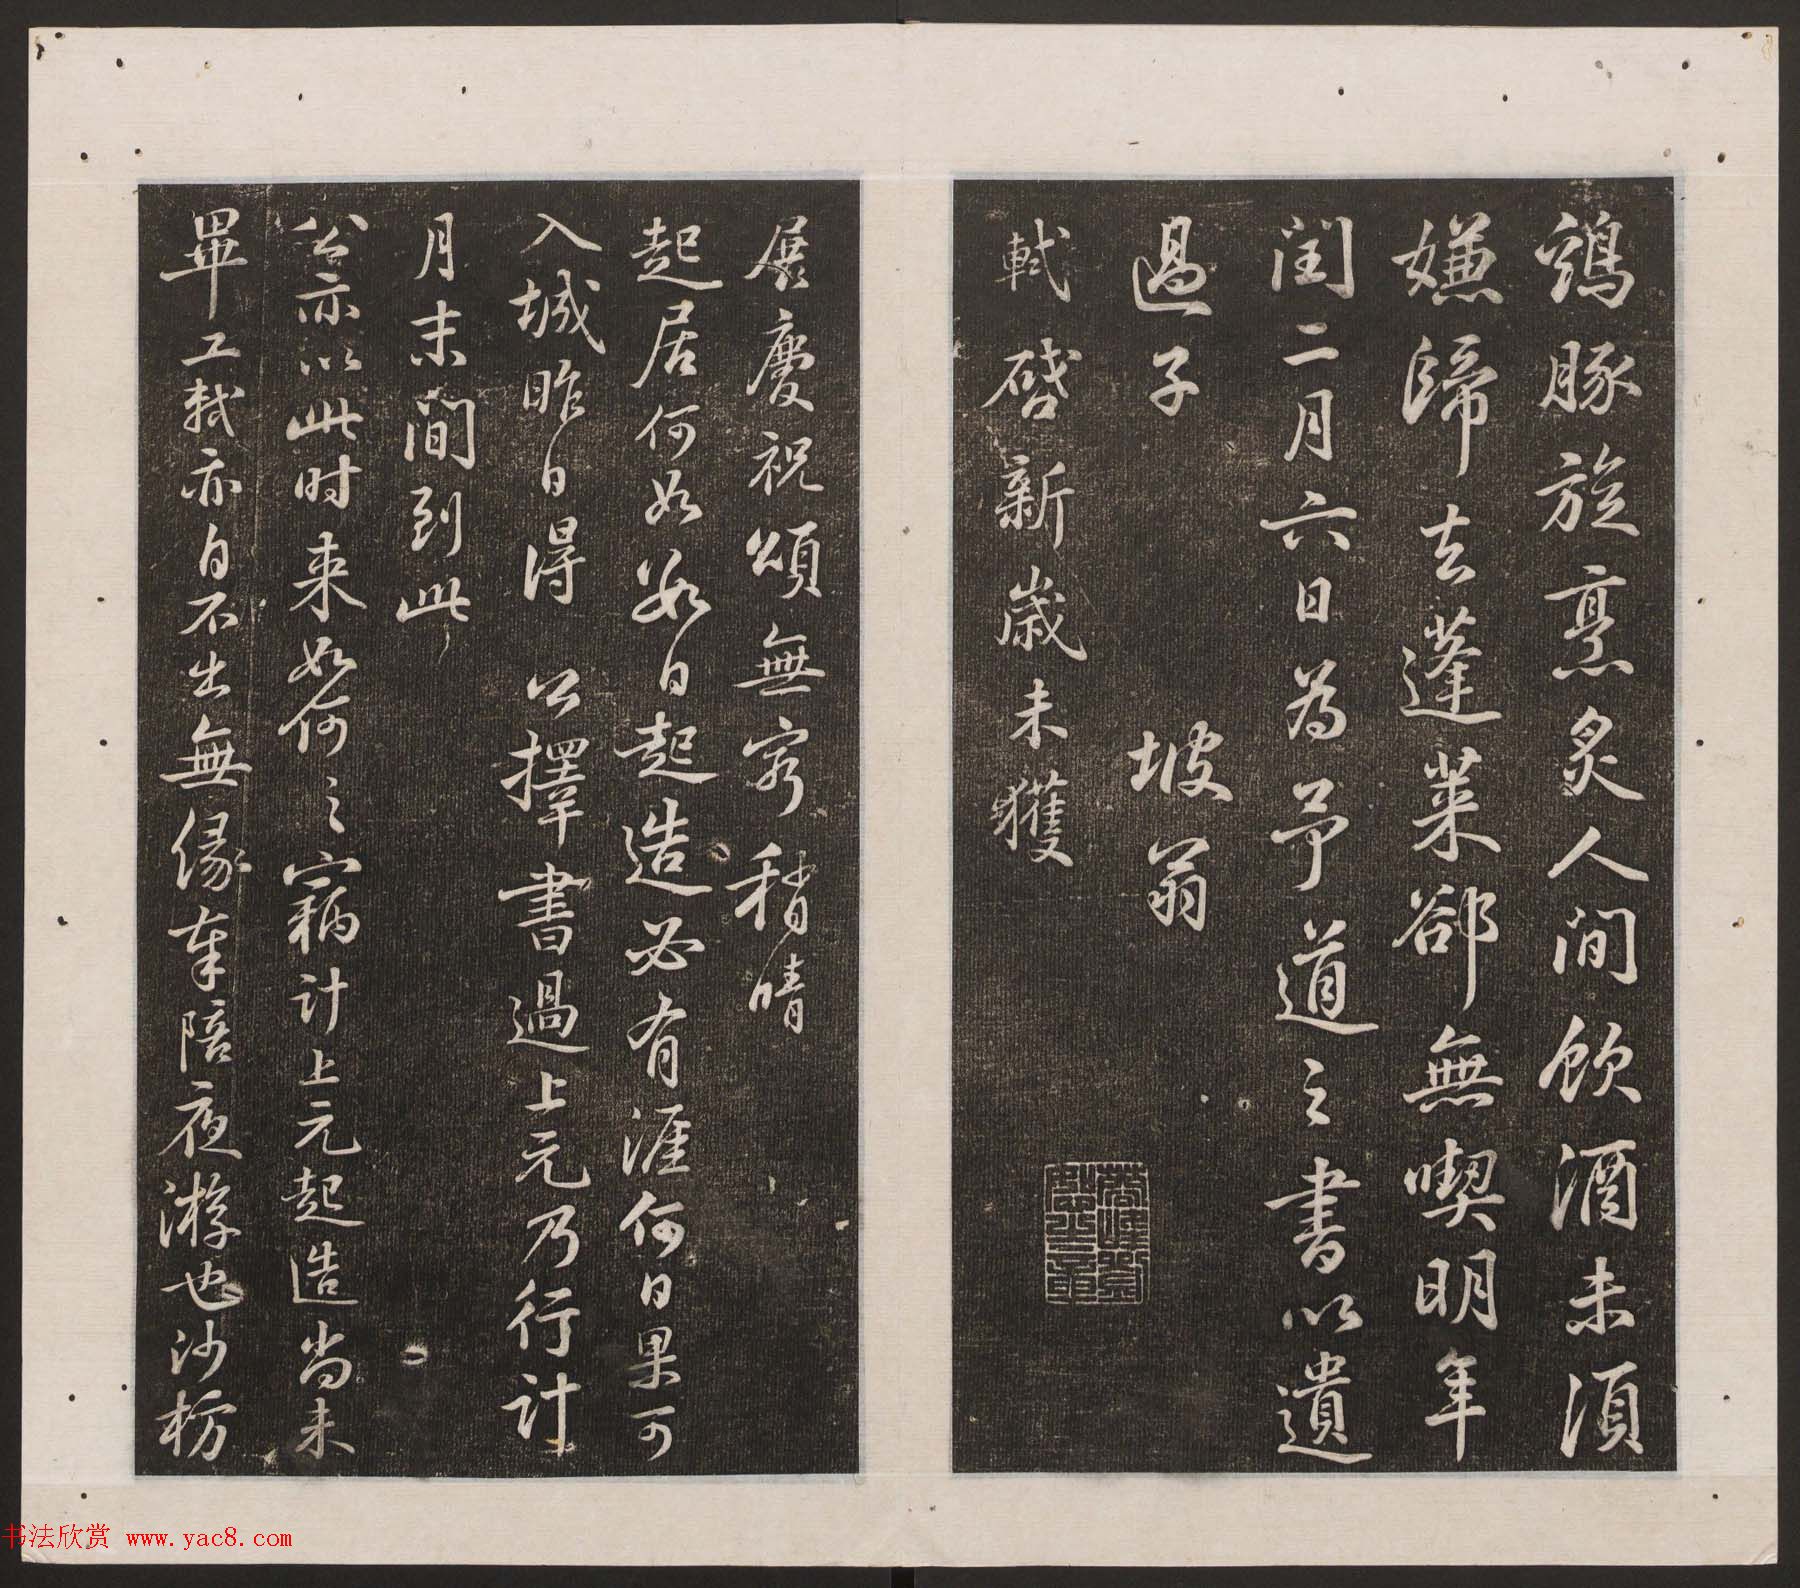 鵝豚旋烹炙人間飲酒未須
嫌歸去蓬萊卻無喫明年
閏二月六日為予道之書以遺
過子 坡翁
軾啓新歲未獲
展慶祝頌無窮稍晴
起居何如數日起造必有涯何日果可
入城昨日得 公擇書過上元乃行計
月末間到此
公亦以此時來如何之竊計上元起造尚未
畢工軾亦自不出無緣奉陪夜游也沙枋
书法欣赏 www.yac8.com